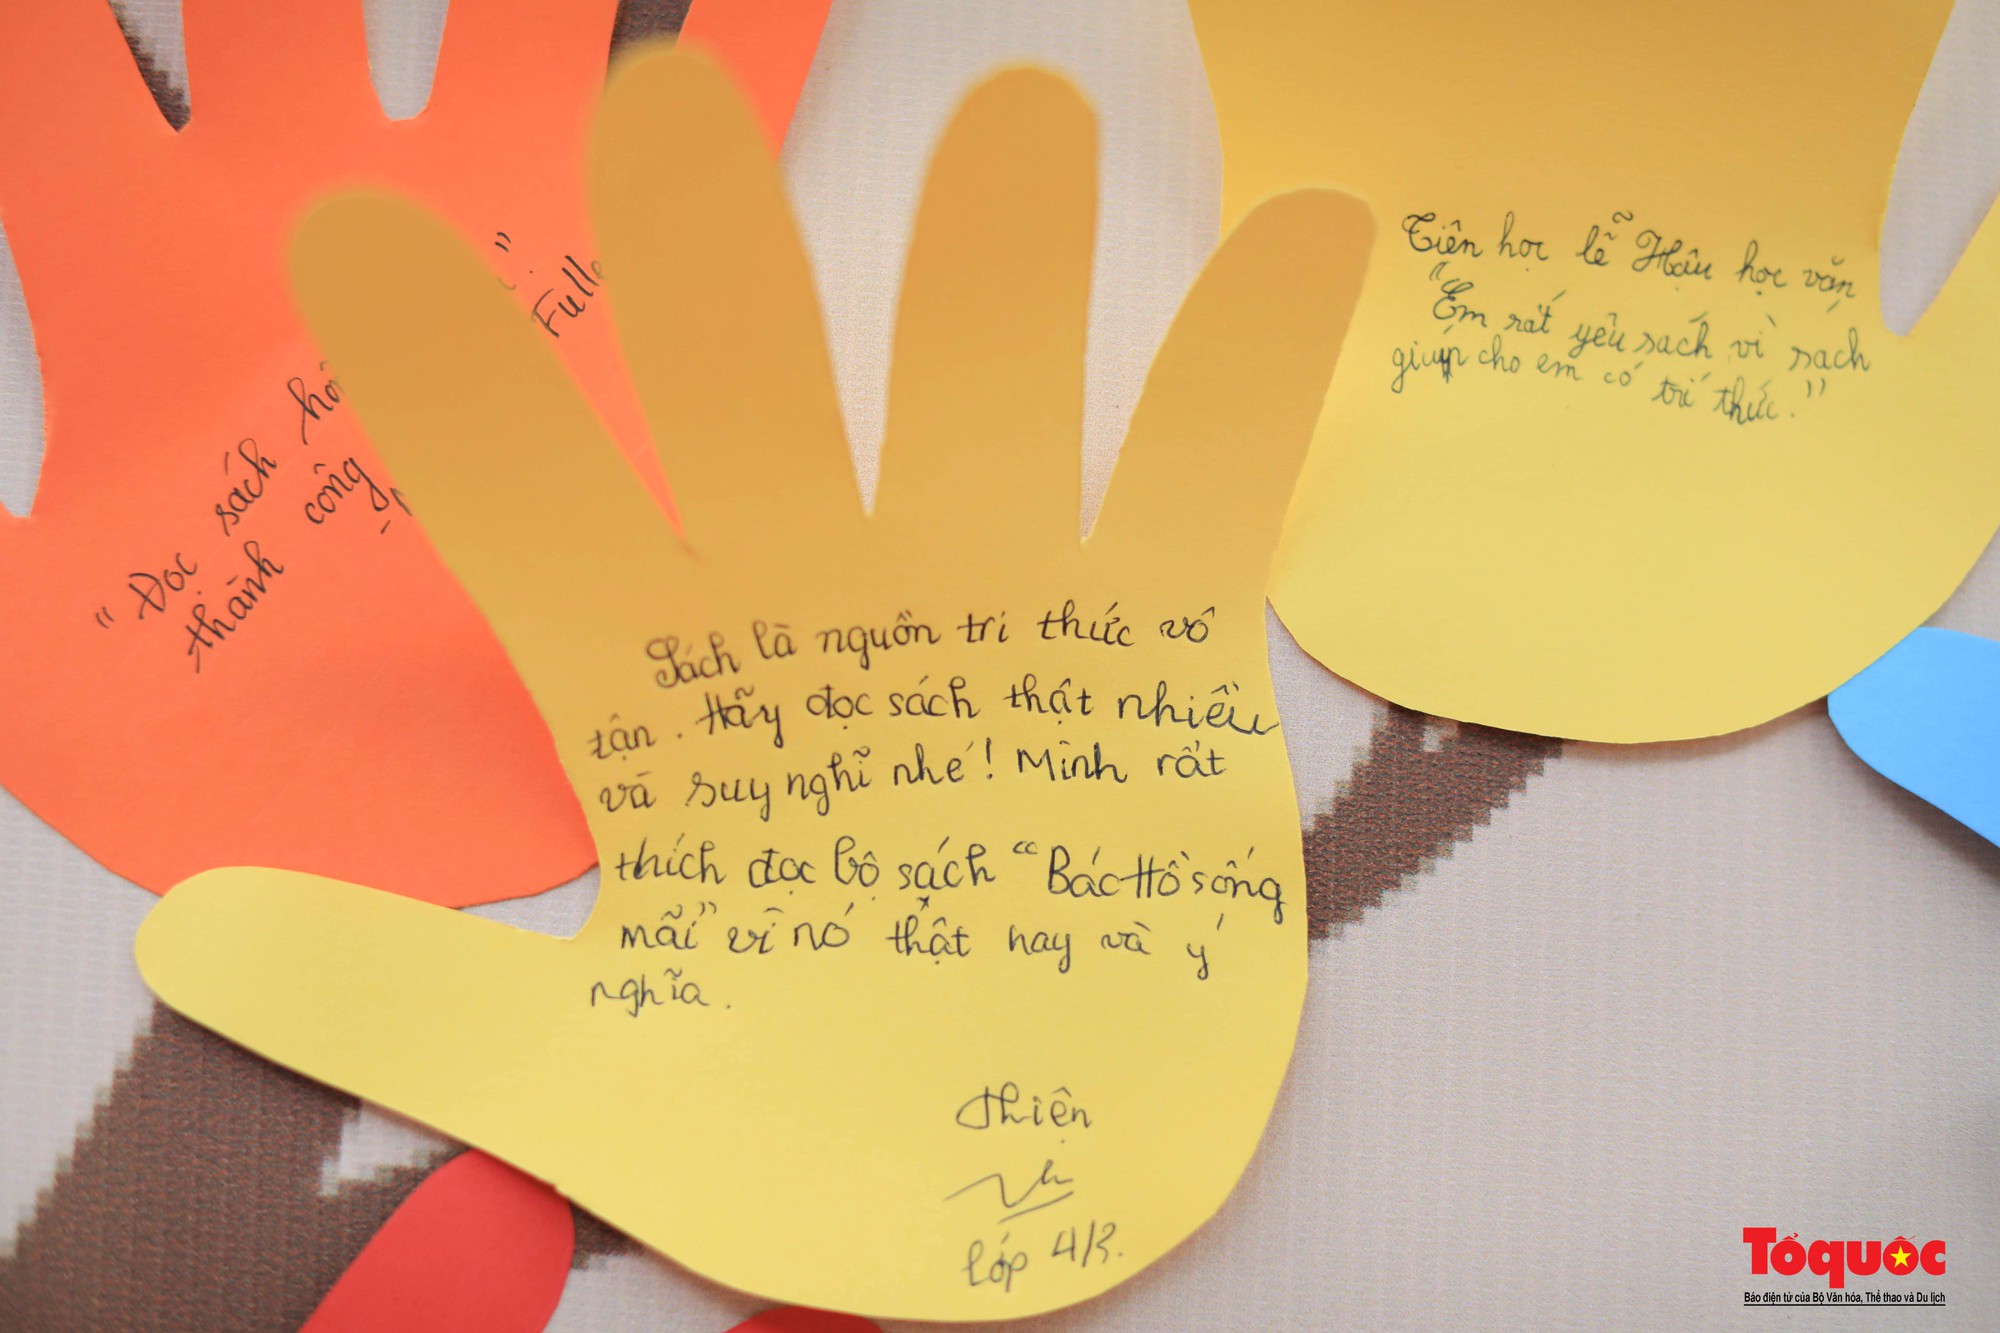 "Đọc sách
thành công
"
Fulle
Sách là nguồn tri thức vô
tận. Hãy đọc sách thật nhiều
và suy nghĩ nhé! Mình rất
thích đọc bộ sách "Bác Hồ sống
mãi" vì nó thật hay và ý
nghĩa.
Thiện
lớp 4/3.
Tiên học lễ Hậu học văn
"Em rất yêu sách vì sách
giúp cho em có trí thức."
Tổ quốc
Báo điện tử của Bộ Văn hóa, Thể thao và Du lịch